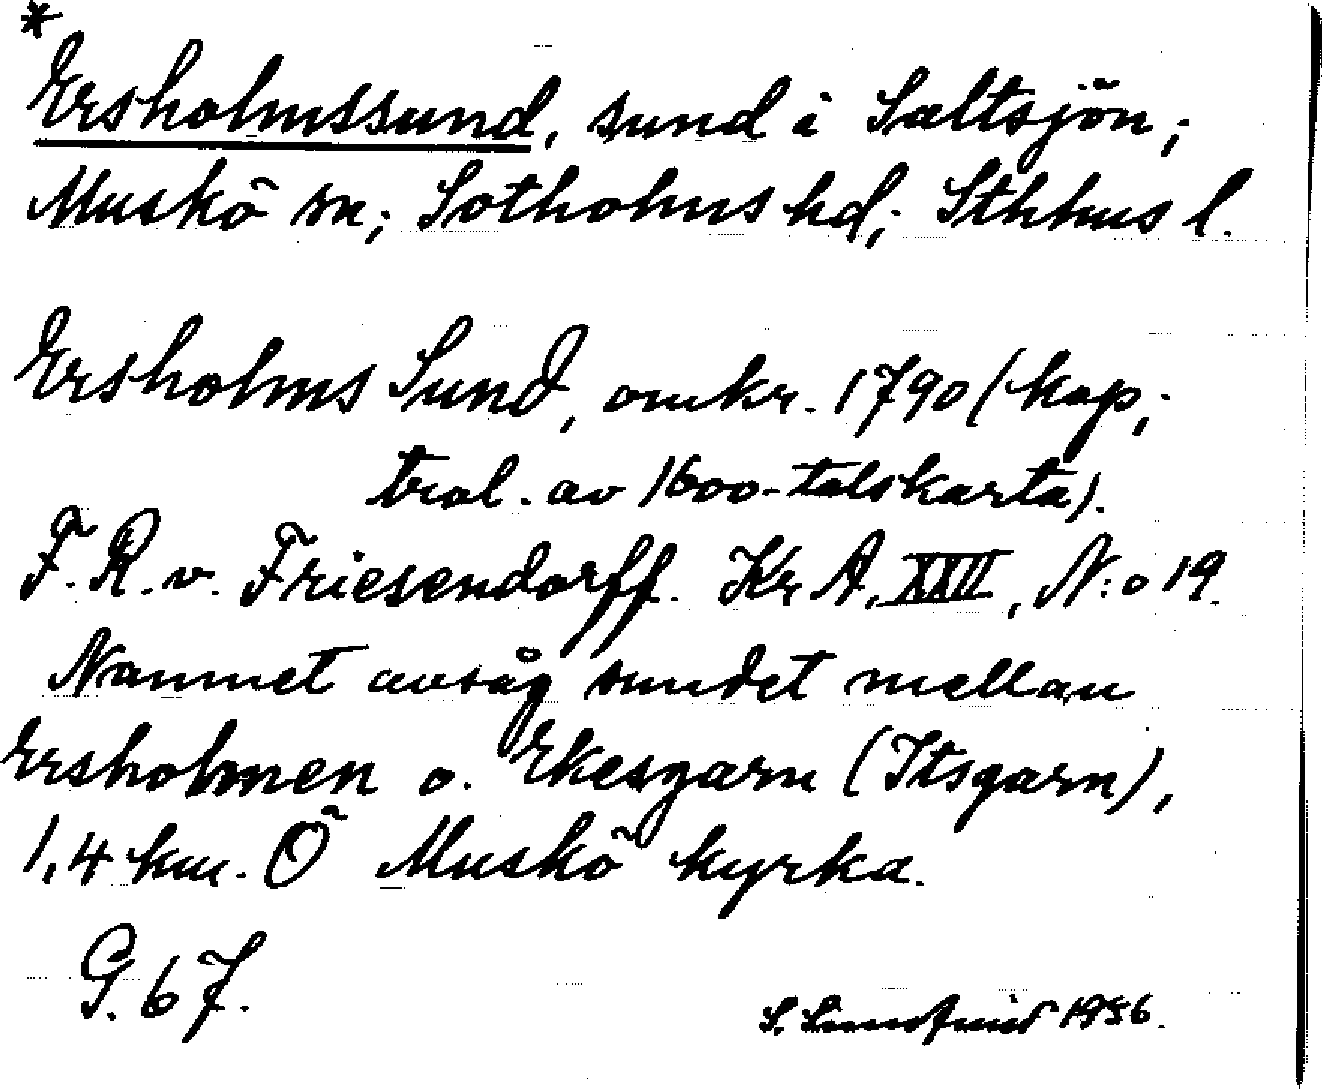 *
Ersholmssund, sund i Saltsjön;
Muskö sn; Sotholms hd; Sthlms l.
Ersholms Sund, omkr. 1790 (kop;
trol. av 1600-talskarta).
F. R. v. Friesendorff. Kr A, XXII, N:o 19.
Namnet avsåg sundet mellan
Ersholmen o. Ekesgarn (Itsgarn),
1,4 km. Ö Muskö kyrka.
G. 67.
S. 1956.